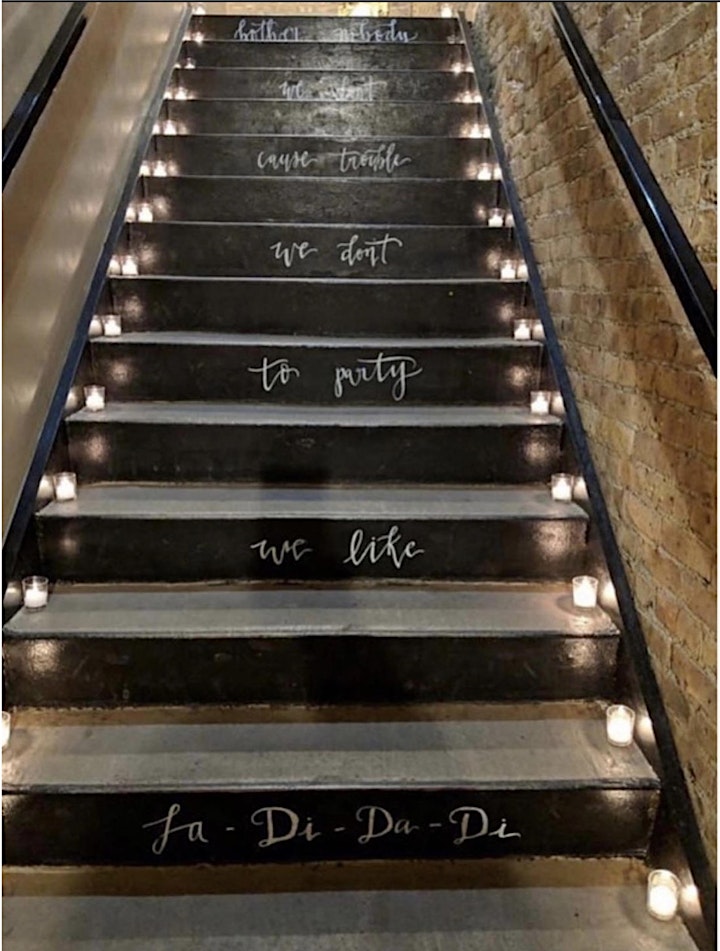 La - Di - Da - Di
we like
to party
we dont
cause trouble
we dont
bother nobody